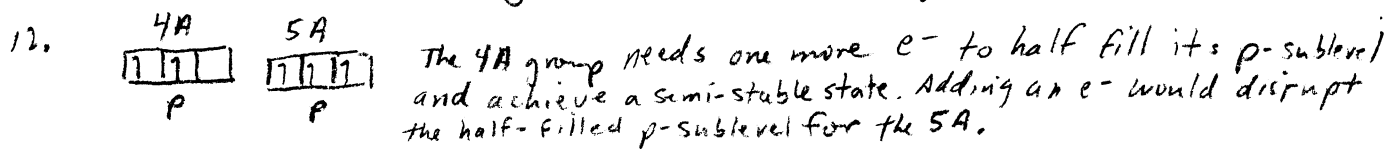 12. 4A 5A
The 4A group needs one more e- to half fill its p-sublevel
1 1 1 1 1
and achieve a semi-stable state. Adding an e- would disrupt
p p
the half-filled p-sublevel for the 5A.